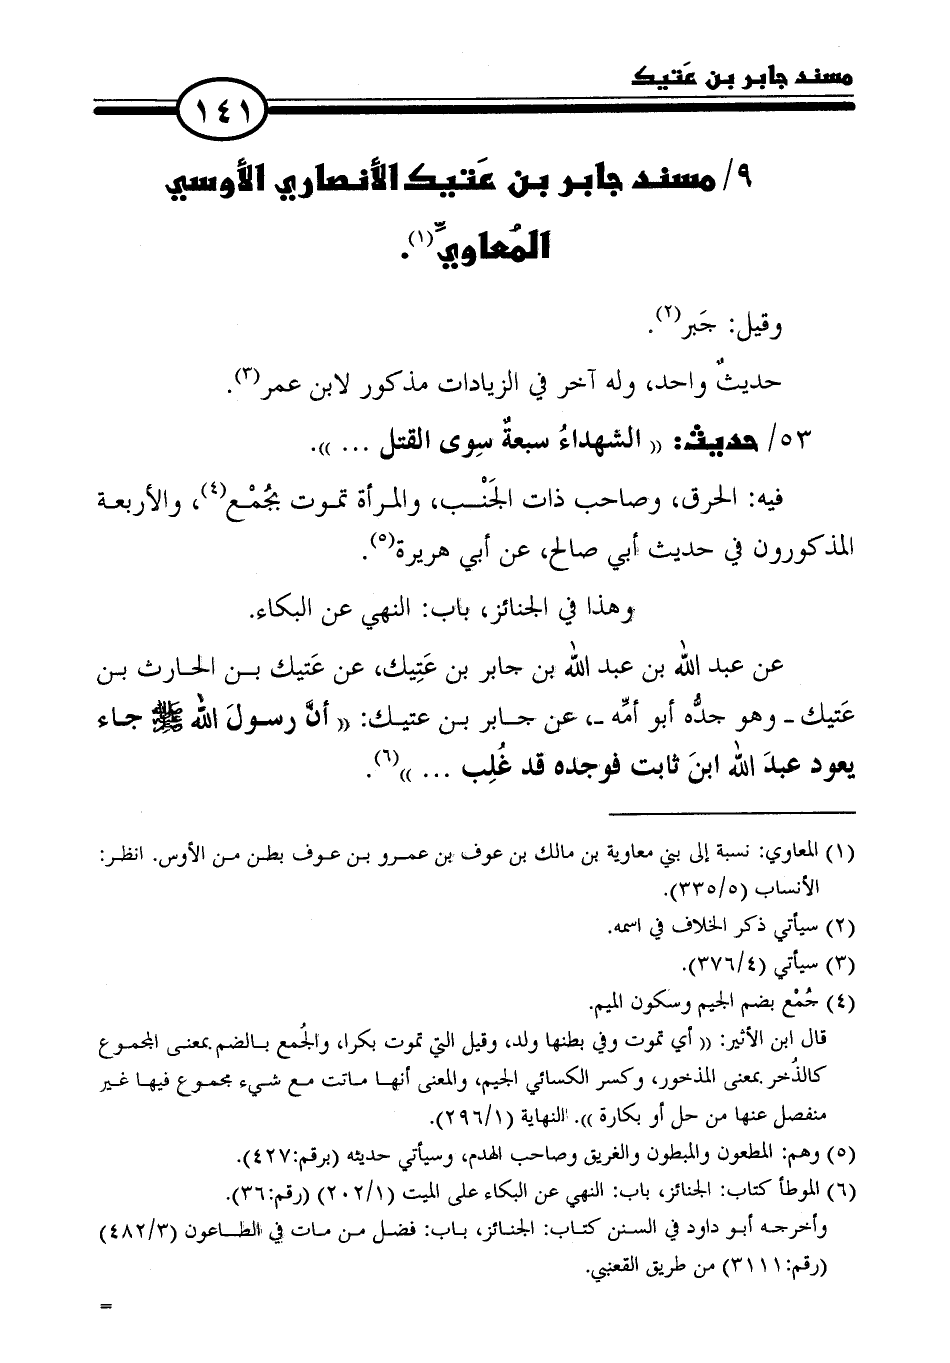 مسند جابر بن عَتيك
١٤١
٩/ مسند جابر بن عَتيك الأنصاري الأوسي
المُعاويِّ(١).
وقيل: جَبر(٢).
حديثٌ واحد، وله آخر في الزيادات مذكور لابن عمر(٣).
٥٣/ حديث: « الشهداءُ سبعةٌ سِوى القتل ... ».
فيه: الحرق، وصاحب ذات الجَنْـب، والمرأة تموت بجُمْع(٤)، والأربعة
المذكورون في حديث أبي صالح، عن أبي هريرة(٥).
وهذا في الجنائز، باب: النهي عن البكاء.
عن عبد الله بن عبد الله بن جابر بن عَتِيك، عن عَتيك بـن الحـارث بـن
عَتيك ـ وهو جدُّه أبو أمِّه ـ، عن جـابر بـن عتيـك: « أنَّ رسـولَ الله ﷺ جـاء
يعود عبدَ الله ابنَ ثابت فوجده قد غُلِب ... »(٦).
(١) المعاوي: نسبة إلى بني معاوية بن مالك بن عوف بن عمـرو بـن عـوف بطن مـن الأوس. انظـر:
الأنساب (٣٣٥/٥).
(٢) سيأتي ذكر الخلاف في اسمه.
(٣) سيأتي (٣٧٦/٤).
(٤) جُمْع بضم الجيم وسكون الميم.
قال ابن الأثير: « أي تموت وفي بطنها ولد، وقيل التي تموت بكرا، والجُمع بـالضم بمعنـى المجمـوع
كالذُخر بمعنى المذخور، وكسر الكسائي الجيم، والمعنى أنهـا مـاتت مـع شـيء مجمـوع فيهـا غـير
منفصل عنها من حمل أو بكارة ». النهاية (٢٩٦/١).
(٥) وهم: المطعون والمبطون والغريق وصاحب الهدم، وسيأتي حديثه (برقم:٤٢٧).
(٦) الموطأ كتاب: الجنائز، باب: النهي عن البكاء على الميت (٢٠٢/١) (رقم:٣٦).
وأخرجه أبـو داود في السنن كتـاب: الجنـائز، بـاب: فضـل مـن مـات في الطـاعون (٤٨٢/٣)
(رقم:٣١١١) من طريق القعنبي.
=